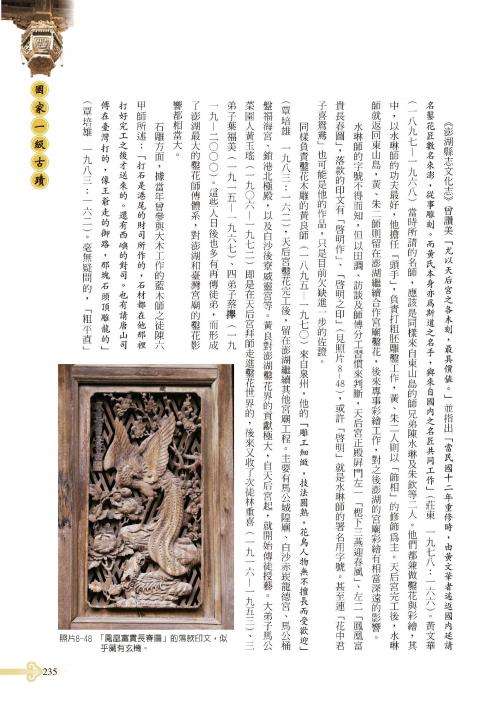 國家一級古蹟
《澎湖縣志文化志》曾讚美「尤以天后宮之各木刻，最具價值。」並指出「當民國十二年重修時，由黃文華者遙返國內延請
名鑿花匠數名來澎，從事雕刻。而黃氏本身亦為斯道之名手，與來自國內之名匠共同工作」（莊東 一九七八：二六六）。黃文華
（一八九七—一九六八）當時所請的名師，應該是同樣來自東山島的師兄弟陳水琳及朱欽等二人。他們都兼做鑿花與彩繪，其
中，以水琳師的功夫最好，他擔任「頭手」，負責打粗胚雕鑿工作，黃、朱二人則以「飾相」的修飾為主。天后宮完工後，水琳
師就返回東山島，黃、朱二師則留在澎湖繼續合作宮廟鑿花，後來專事彩繪工作，對之後澎湖的宮廟彩繪有相當深遠的影響。
水琳師的字號不得而知，但以田調、訪談及師傅分工習慣來判斷，天后宮正殿屏門左一「杞下三燕迎春風」、左二「鳳凰富
貴長春圖」，落款的印文有「啓明作」、「啓明之印」（見照片8-48），或許「啓明」就是水琳師的署名用字號。甚至連「花中君
子喜鴛鴦」也可能是他的作品，只是目前欠缺進一步的佐證。
同樣負責鑿花木雕的黃良師（一八九五—一九七〇）來自泉州，他的「雕工細緻，技法圓熟，花鳥人物無不擅長而受歡迎」
（覃培雄 一九八三：一六二），天后宮鑿花完工後，留在澎湖繼續其他宮廟工程。主要有馬公城隍廟、白沙赤崁龍德宮、馬公桶
盤福海宮、鎖港北極殿，以及白沙後寮威靈宮等。黃良對澎湖鑿花界的貢獻極大，自天后宮起，就開始傳徒授藝。大弟子馬公
菜園人黃玉瑤（一九〇六—一九七二）即是在天后宮拜師走進鑿花世界的，後來又收了次徒林重喜（一九一六—一九五三）、三
弟子葉福美（一九一五—一九六七）、四弟子蔡擇（一九
一九—二〇〇〇）。這些人日後也多有再傳徒弟，而形成
了澎湖最大的鑿花師傅體系，對澎湖和臺灣宮廟的鑿花影
響都相當大。
石雕方面，據當年曾參與大木工作的藍木師之徒陳六
甲師所述：「打石是港尾的財司所作的，石材都在他那裡
打好完工之後才送來的。還有西嶼的對司。也有請唐山司
傅在臺灣打的，像王爺走的御路，那塊石頭頂雕龍的」
（覃培雄 一九八三：一六二）。毫無疑問的，「粗平直」
照片8-48 「鳳凰富貴長春圖」的落款印文，似
乎藏有玄機。
235